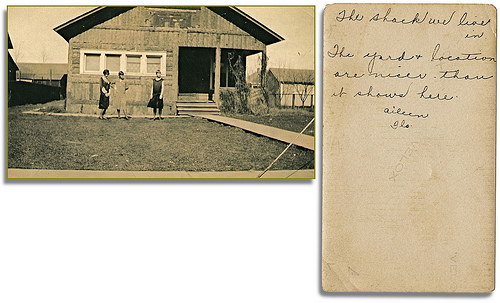 The shack we live
in.
The yard & location
are nicer than
it shows here.
Aileen
Glo.